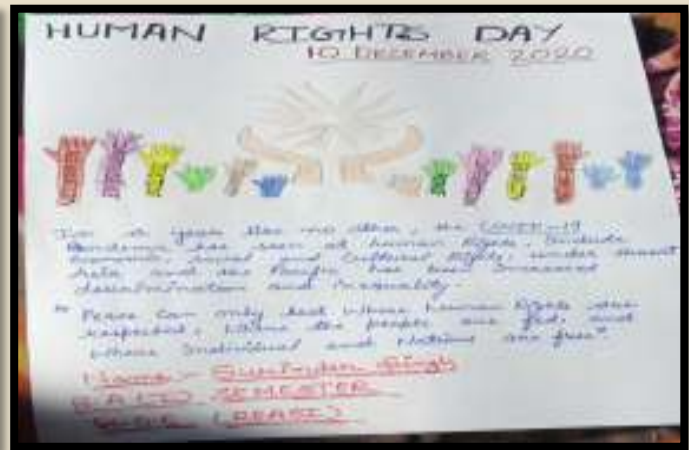 HUMAN RIGHTS DAY
10 DECEMBER 2020
In a year like no other, the COVID-19
Pandemic has seen at human Rights, Include
Economic, Social and Cultural Rights, under
and the Pacific has been Increased
discrimination and inequality
" Peace can only last where human Rights are
respected, where the people are fed, and
where Individual and Nations are free".
Name - Singh
SEMESTER
(REASI)